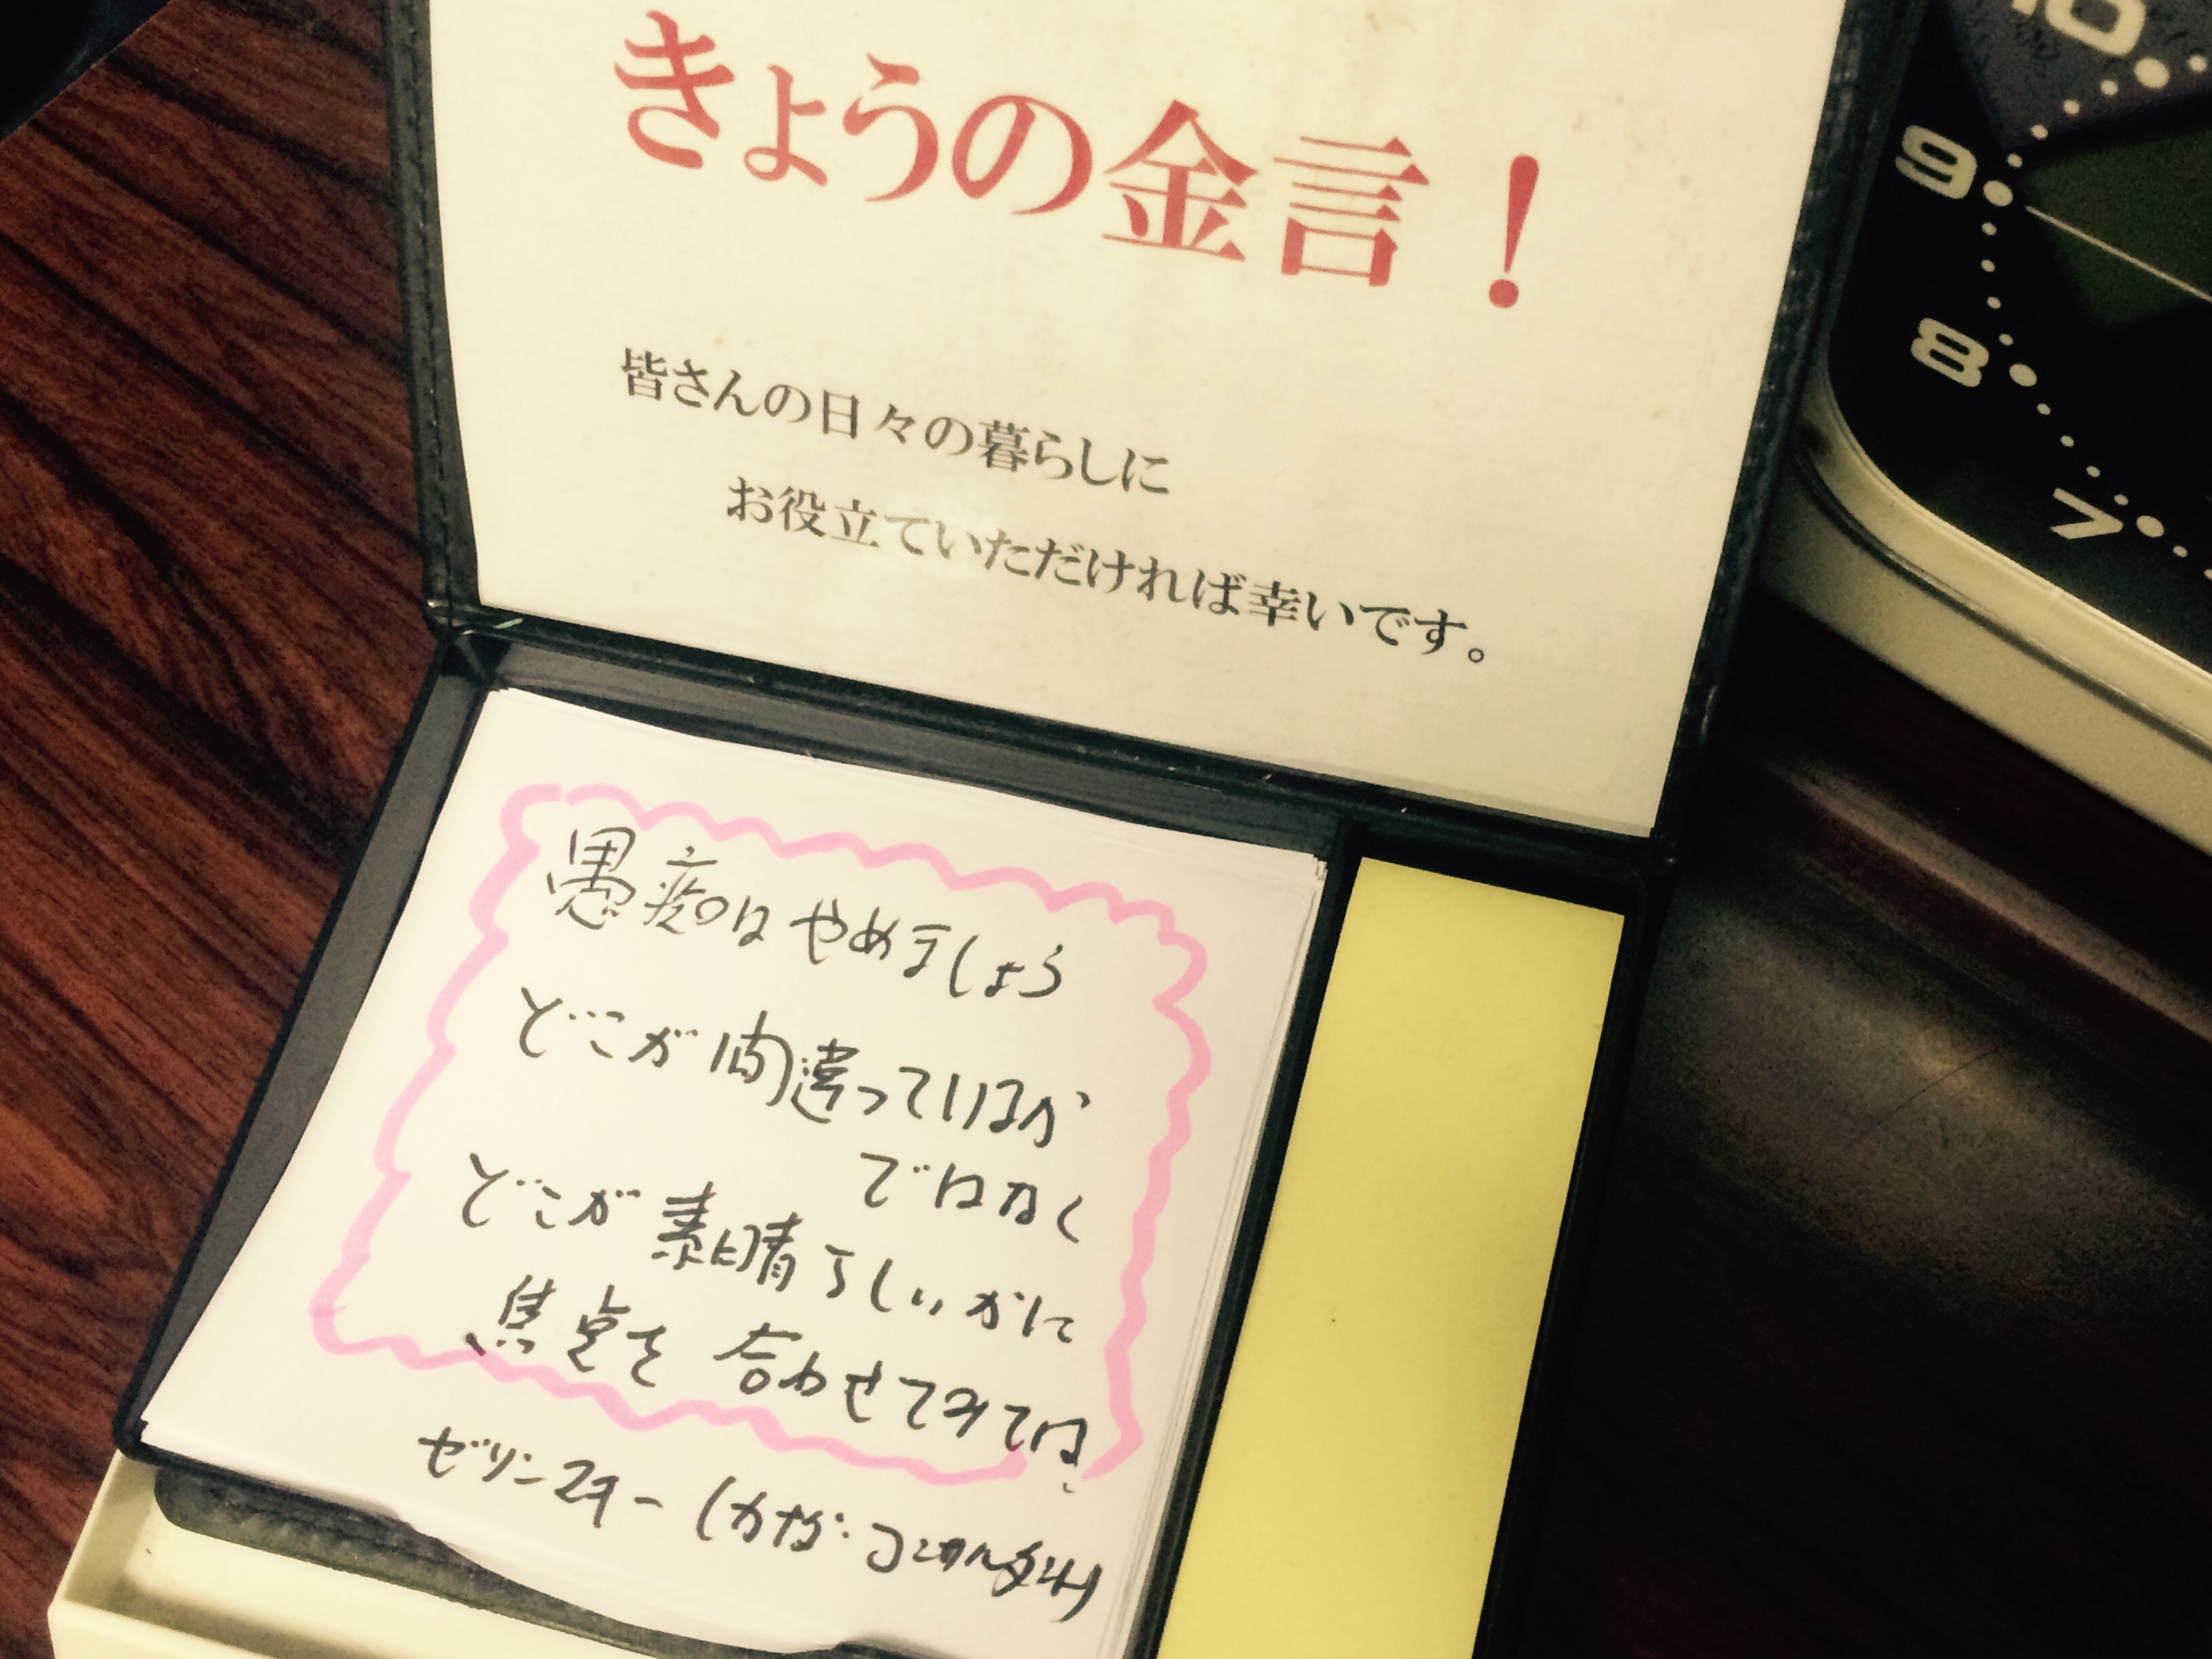 きょうの金言！
皆さんの日々の暮らしに
お役立ていただければ幸いです。
愚痴はやめましょう
どこが間違っているか
ではなく
どこが素晴らしいかに
焦点を合わせてみては
ゼリンスキー(カナダ・コンサルタント)
10
9
8
7